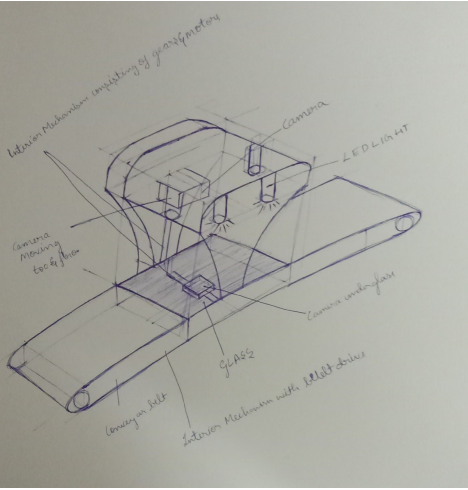 Interior Mechanism consisting of gears & motors
Camera
LED LIGHT
Camera
Moving
to & fro
Camera under glass
GLASS
Conveyor belt
Interior Mechanism with belt drive